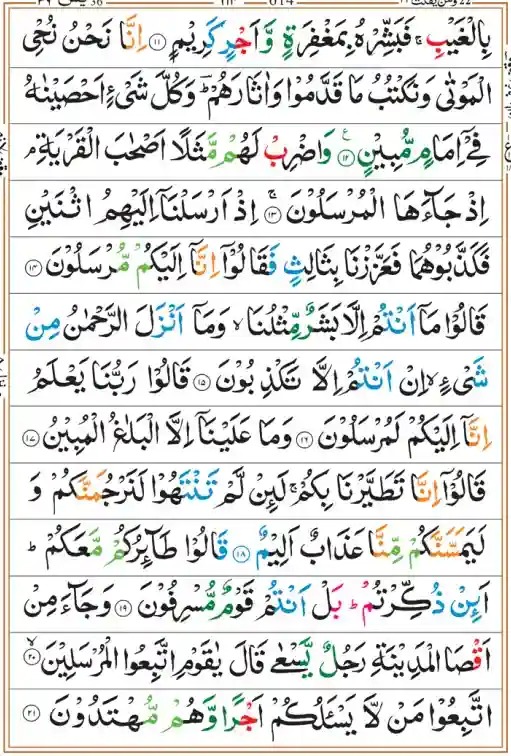 بِالْغَيْبِ ۚ فَبَشِّرْهُ بِمَغْفِرَةٍ وَّاَجْرٍ كَرِيْمٍ ﴿۱۱﴾ اِنَّا نَحْنُ نُحْيِ
الْمَوْتٰى وَنَكْتُبُ مَا قَدَّمُوْا وَاٰثَارَهُمْ ؕ وَكُلَّ شَيْءٍ اَحْصَيْنٰهُ
فِيْۤ اِمَامٍ مُّبِيْنٍ ﴿۱۲﴾ وَاضْرِبْ لَهُمْ مَّثَلًا اَصْحٰبَ الْقَرْيَةِ ۘ
اِذْ جَآءَهَا الْمُرْسَلُوْنَ ۚ ﴿۱۳﴾ اِذْ اَرْسَلْنَاۤ اِلَيْهِمُ اثْنَيْنِ
فَكَذَّبُوْهُمَا فَعَزَّزْنَا بِثَالِثٍ فَقَالُوْۤا اِنَّاۤ اِلَيْكُمْ مُّرْسَلُوْنَ ﴿۱۴﴾
قَالُوْا مَاۤ اَنْتُمْ اِلَّا بَشَرٌ مِّثْلُنَا ۙ وَمَاۤ اَنْزَلَ الرَّحْمٰنُ مِنْ
شَيْءٍ ۙ اِنْ اَنْتُمْ اِلَّا تَكْذِبُوْنَ ﴿۱۵﴾ قَالُوْا رَبُّنَا يَعْلَمُ
اِنَّاۤ اِلَيْكُمْ لَمُرْسَلُوْنَ ﴿۱۶﴾ وَمَا عَلَيْنَاۤ اِلَّا الْبَلٰغُ الْمُبِيْنُ ﴿۱۷﴾
قَالُوْۤا اِنَّا تَطَيَّرْنَا بِكُمْ ۚ لَئِنْ لَّمْ تَنْتَهُوْا لَنَرْجُمَنَّكُمْ وَ
لَيَمَسَّنَّكُمْ مِّنَّا عَذَابٌ اَلِيْمٌ ﴿۱۸﴾ قَالُوْا طَآئِرُكُمْ مَّعَكُمْ ؕ
اَئِنْ ذُكِّرْتُمْ ؕ بَلْ اَنْتُمْ قَوْمٌ مُّسْرِفُوْنَ ﴿۱۹﴾ وَجَآءَ مِنْ
اَقْصَا الْمَدِيْنَةِ رَجُلٌ يَّسْعٰى قَالَ يٰقَوْمِ اتَّبِعُوا الْمُرْسَلِيْنَ ۙ ﴿۲۰﴾
اتَّبِعُوْا مَنْ لَّا يَسْئَلُكُمْ اَجْرًا وَّهُمْ مُّهْتَدُوْنَ ﴿۲۱﴾